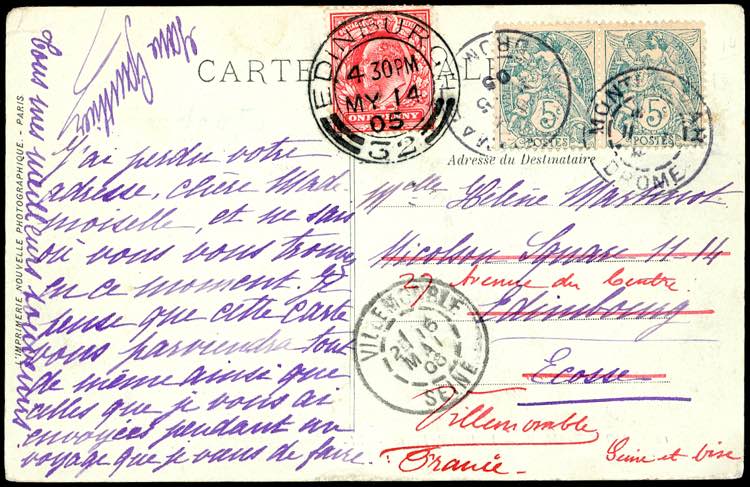 CARTE POSTALE
EDINBURGH
4.30PM
MY 14
05
32
ONE PENNY
5c
POSTES
5c
POSTES
MONTÉLIMAR
DROME
DROME
05
Adresse du Destinataire
L'IMPRIMERIE NOUVELLE PHOTOGRAPHIQUE. - PARIS
J'ai perdu votre
adresse, chère Made
moiselle, et ne sais
où vous vous trouvez
en ce moment. Je
pense que cette carte
vous parviendra tout
de même ainsi que
celles que je vous ai
envoyées pendant un
voyage que je viens de faire.
Tous mes meilleurs souvenirs
Melle Hélène Martinot
Nicolson Square 11-14
37 Avenue du Centre
Edimbourg
Ecosse
Villemomble
Seine et Oise
France
VILLEMOMBLE
16
MAI
05
SEINE